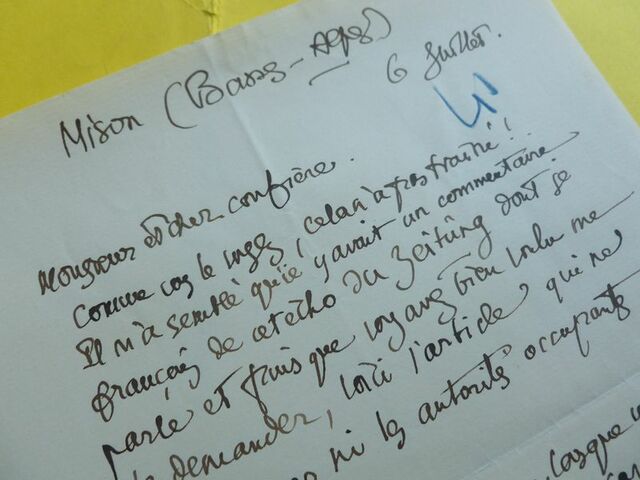 Mison (Basses-Alpes)
6 Juillet.
Monsieur et cher confrère.
Comme vous le voyez, cela n'a pas traîné !
Il m'a semblé qu'il y avait un commentaire
français de cet écho du Zeitung dont je
parle et puis que vous avez bien voulu me
le demander, voici l'article, qui ne
ni les autorités occupantes
lorsque